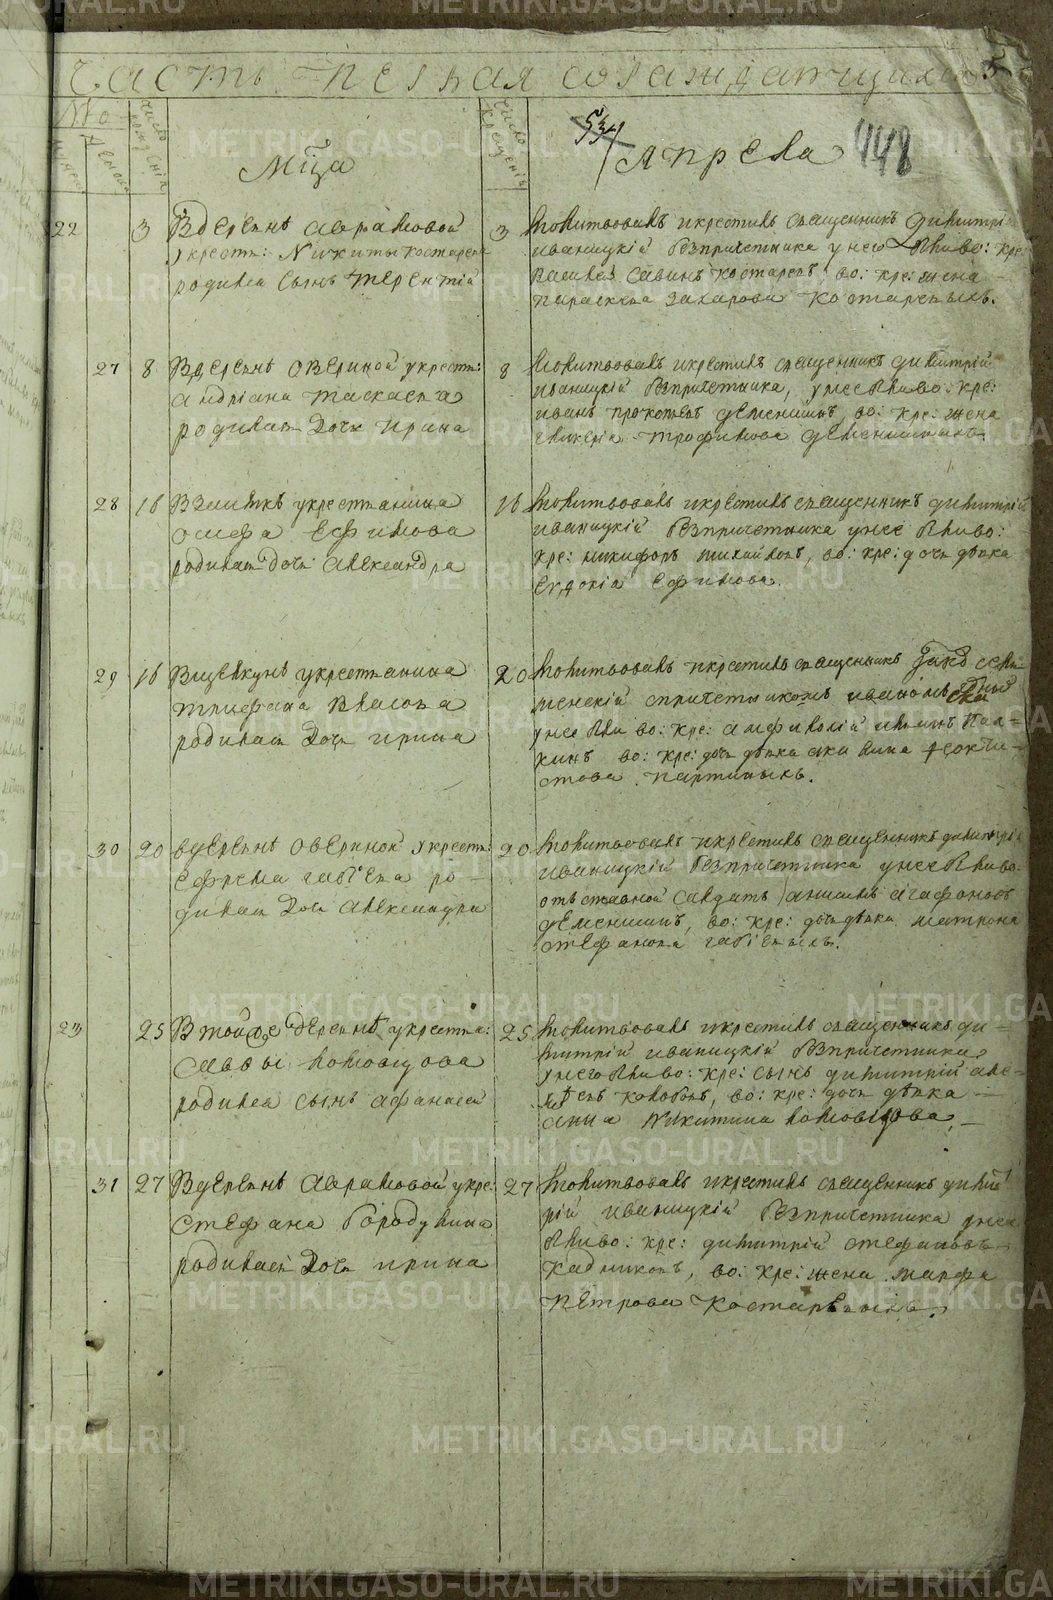 Часть первая оражда́ющихся 5
№
мужеска
женска
число рождения
число крещения
534
448
Мца
Апреля
22 3 В деревне Аврамовой
у крестъ: Никиты Костарева
родился сынъ Терентій
3 Молитвовалъ и крестилъ священникъ Димитрі
Иваницкій безпричетника у него были во: кре:
Василей Савинъ Костаревъ, во: кре: жена
Параскева Захарова Костаревыхъ.
27 8 В деревне Овериной у крестъ:
Андріана Таскаева
родилась дочь Ирина
8 Молитвовалъ и крестилъ священникъ Димитрій
Иваницкій безпричетника, у нее были во: кре:
Иванъ Прокопьевъ Деменшинъ, во: кре: жена
Гликерія Трофимова Деменшиныхъ.
28 16 у крестьянина
Осифа Ефимова
родилась дочь Александра
16 Молитвовалъ и крестилъ священникъ Димитрій
Иваницкій безпричетника у нее были во:
кре: Никифоръ Михайловъ, во: кре: дочь девка
Евдокія Ефимова.
29 16 у крестьянина
Трифана Власова
родилась дочь Ирина
20 Молитвовалъ и крестилъ священникъ Іаковъ
спричетникомъ Иваномъ
у нее были во: кре: Амфилохій
во: кре: дочь девка Акилина Феокти-
стова Партиныхъ.
30 20 в деревне Овериной у крестъ:
Ефрема Гаѣева ро-
дилась дочь Александра
20 Молитвовалъ и крестилъ священникъ Димитрій
Иваницкій безпричетника у нее были во:
отъставной салдатъ Агафоновъ
Деменшинъ, во: кре: дочь девка Матрона
Стефанова Гаѣевыхъ.
23 25 В той же деревне у крестья:
Саввы Ломовцова
родился сынъ Афанасей
25 Молитвовалъ и крестилъ священникъ Ди-
митрій Иваницкій безпричетника,
у него были во: кре: сынъ Димитрій Але-
ксѣевъ Коловолъ, во: кре: дочь девка
Анна Никитина Ломовцова,
31 27 В деревне Аврамовой у кре:
Стефана Бородулина
родилась дочь Ирина
27 Молитвовалъ и крестилъ священникъ Димит
рій Иваницкій безпричетника у нее
были во: кре: Димитрій Стефановъ
Кадниковъ, во: кре: жена Марфа
Петрова Костаревыхъ.
METRIKI.GASO-URAL.RU